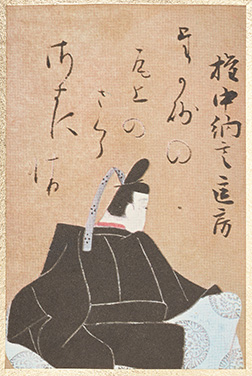 権中納言匡房
たか砂の
尾上の
さくら
さきにけり